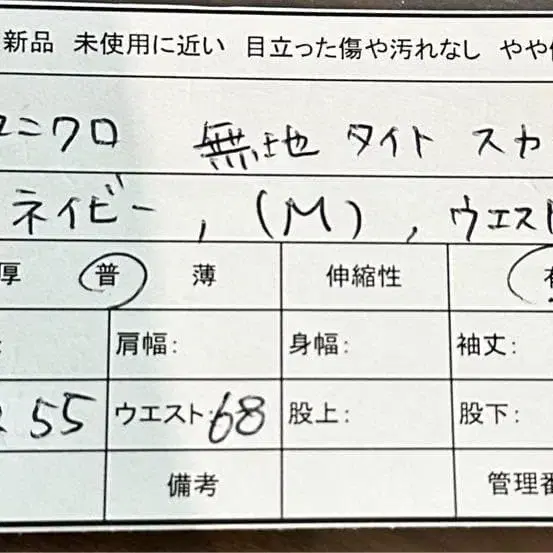 新品 未使用に近い 目立った傷や汚れなし やや
ユニクロ 無地 タイト スカ
ネイビー , (M) , ウエスト
厚 普 薄 伸縮性
肩幅: 身幅: 袖丈:
55 ウエスト:68 股上: 股下:
備考 管理番